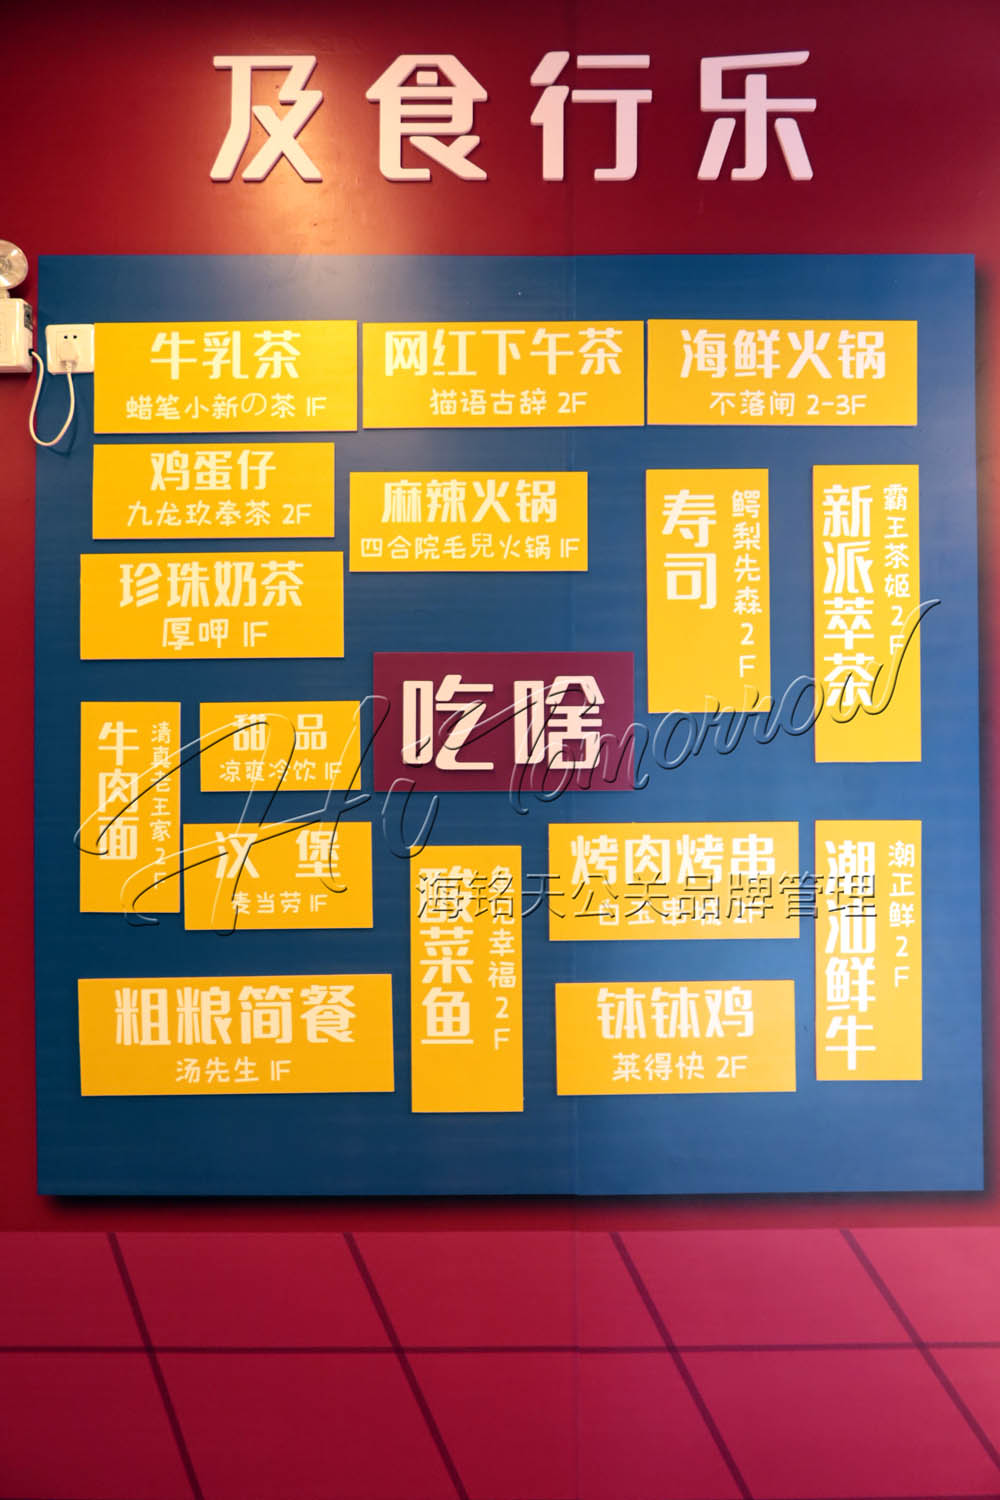 及食行乐
牛乳茶
蜡笔小新の茶 1F
网红下午茶
猫语古辞 2F
海鲜火锅
不落闸 2-3F
鸡蛋仔
九龙玖奉茶 2F
麻辣火锅
四合院毛兒火锅 1F
寿司
鳄梨先森2F
新派萃茶
霸王茶姬2F
珍珠奶茶
厚呷 1F
吃啥
牛肉面
清真老王家2F
甜品
凉爽冷饮 1F
汉堡
麦当劳 1F
酸菜鱼
幸福2F
烤肉烤串
2F
潮汕鲜牛
潮正鲜2F
粗粮简餐
汤先生 1F
钵钵鸡
莱得快 2F
Hi Tomorrow
海铭天公关品牌管理